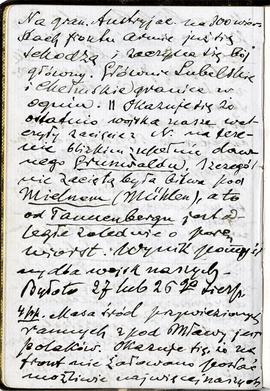 Na gran. Austryjac. na 300 wior-
stach frontu armie już się
schodzą i zaczyna się bój
główny. Głównie Lubelskie
i Chełmskie granice w
ogniu. || Okazuje się że
ostatnio wojska nasze
zacięcie N. na tere-
nie bliskim zupełnie daw-
nego Grunwaldu. Szczegól-
nie zacięta była bitwa pod
Mielnem (Mühlen), a to
od Tannenbergu jest od-
ległe zaledwie o parę
wiorst. Wynik pomyśl-
ny dla wojsk naszych.
Było to 27 lub 26 sierp.
4/IX. Masa śród przywiezionych
rannych z pod Mławy jest
polaków. Okazuje się, że na
front nie żałowano posłać
możliwie najwięcej naszych